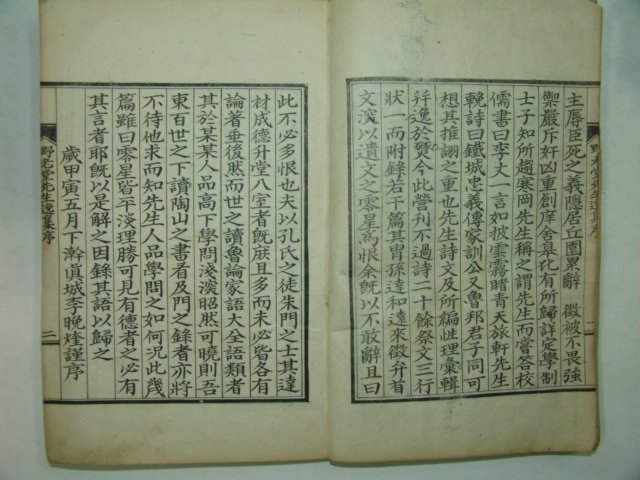 主辱臣死之義隱居丘園累辭 徵被不畏強
禦嚴斥奸凶重創庠舍皋比有所歸詳定學制
士子知所趨寒岡先生稱之謂先生而嘗答校
儒書曰李丈一言如披雲霧睹青天旅軒先生
輓詩曰鐵城忠義傳家訓公又魯邦君子同可
想其推詡之重也先生詩文及所編性理彙輯
幷逸於燹今此營刊不過詩二十餘祭文三行
狀一而附錄若干篇其胄孫達和達來徵弁首
文演以遺文之零星爲恨余旣以不敢辭且曰
野老堂先生逸集序
此不必多恨也夫以孔氏之徒朱門之士其達
材成德升堂入室者旣庶且多而未必皆各有
論著垂後然而世之讀魯論家語大全語類者
其於某某人品高下學問淺演昭然可曉則吾
東百世之下讀陶山之書者及門之錄者亦將
不待他求而知先生人品學問之如何況此幾
篇雖曰零星皆平淡理勝可見有德者之必有
其言者耶旣以是解之因錄其語以歸之
歲甲寅五月下澣眞城李晚煃謹序
野老堂先生逸集序
二